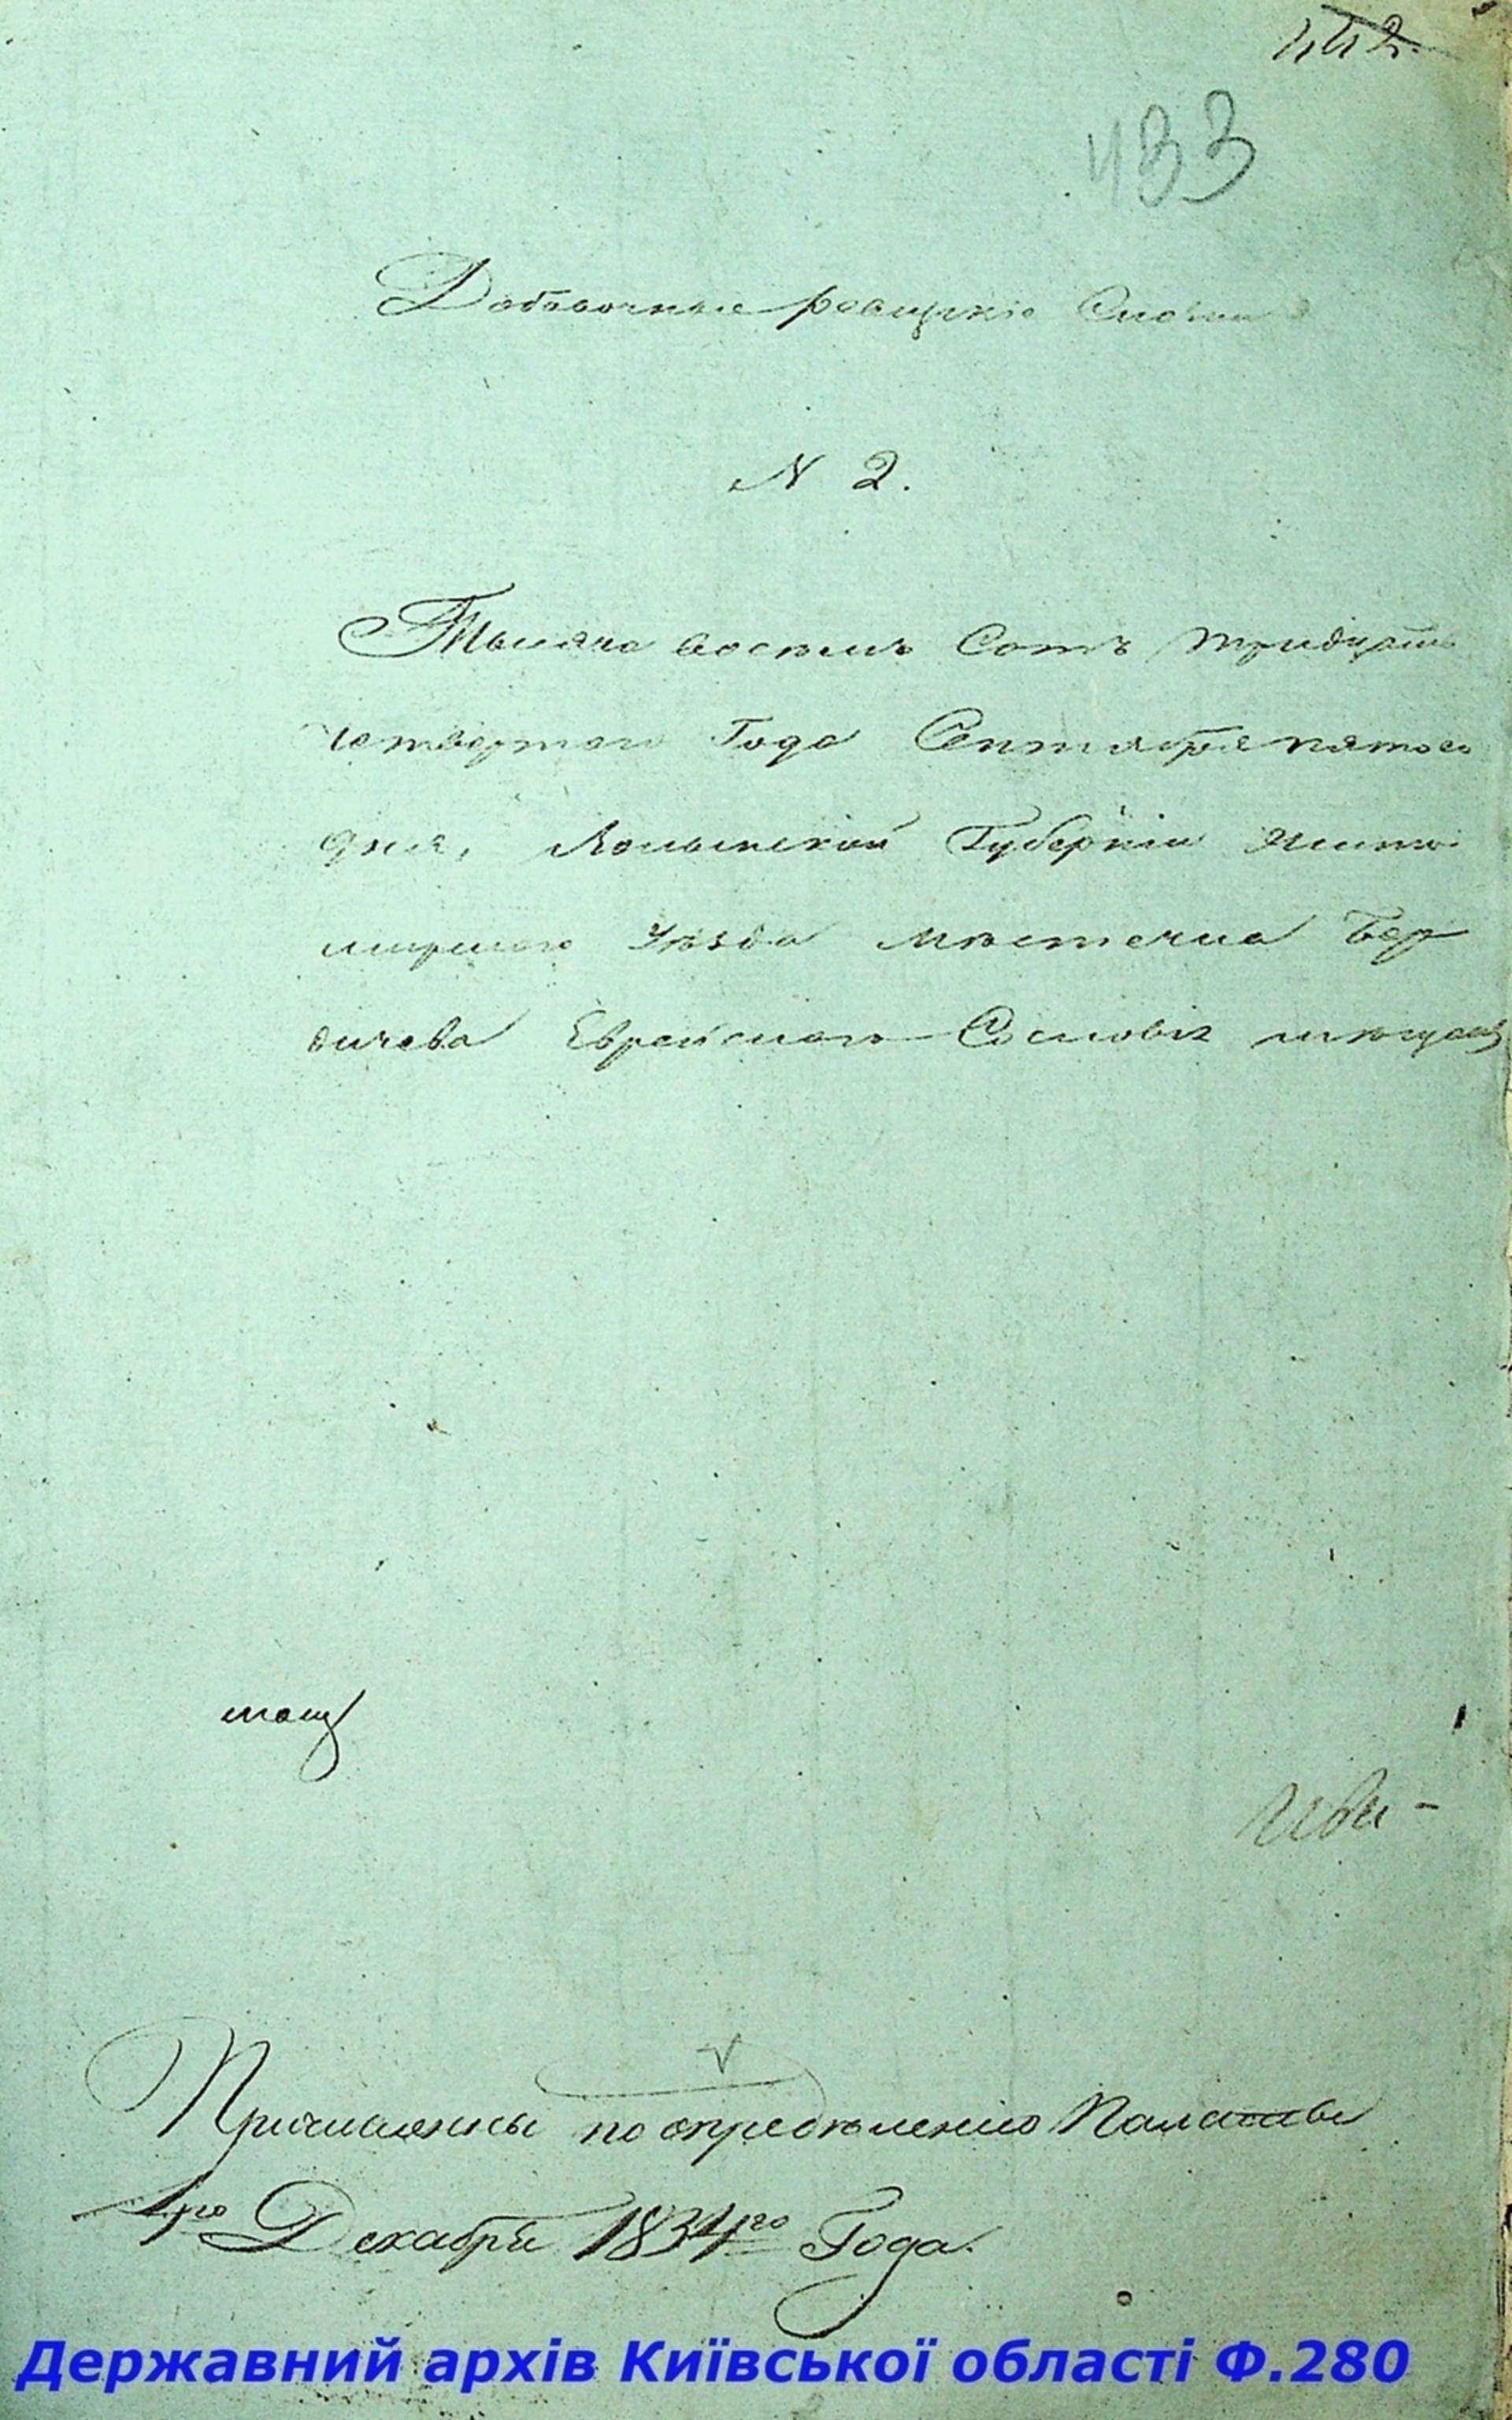 442.
433
Добавочные ревизскіе Сказки
N 2.
Тысяча восемь Сотъ тридцать
четвертаго Года Сентября пятого
дня, Волынской Губерніи Жито-
мирскаго Уѣзда мѣстечка Бер
дичева Еврейскаго Сословія мѣщанъ
Причислены по опредѣленію Палаты
4го Декабря 1834го Года.
Державний архів Київської області Ф.280